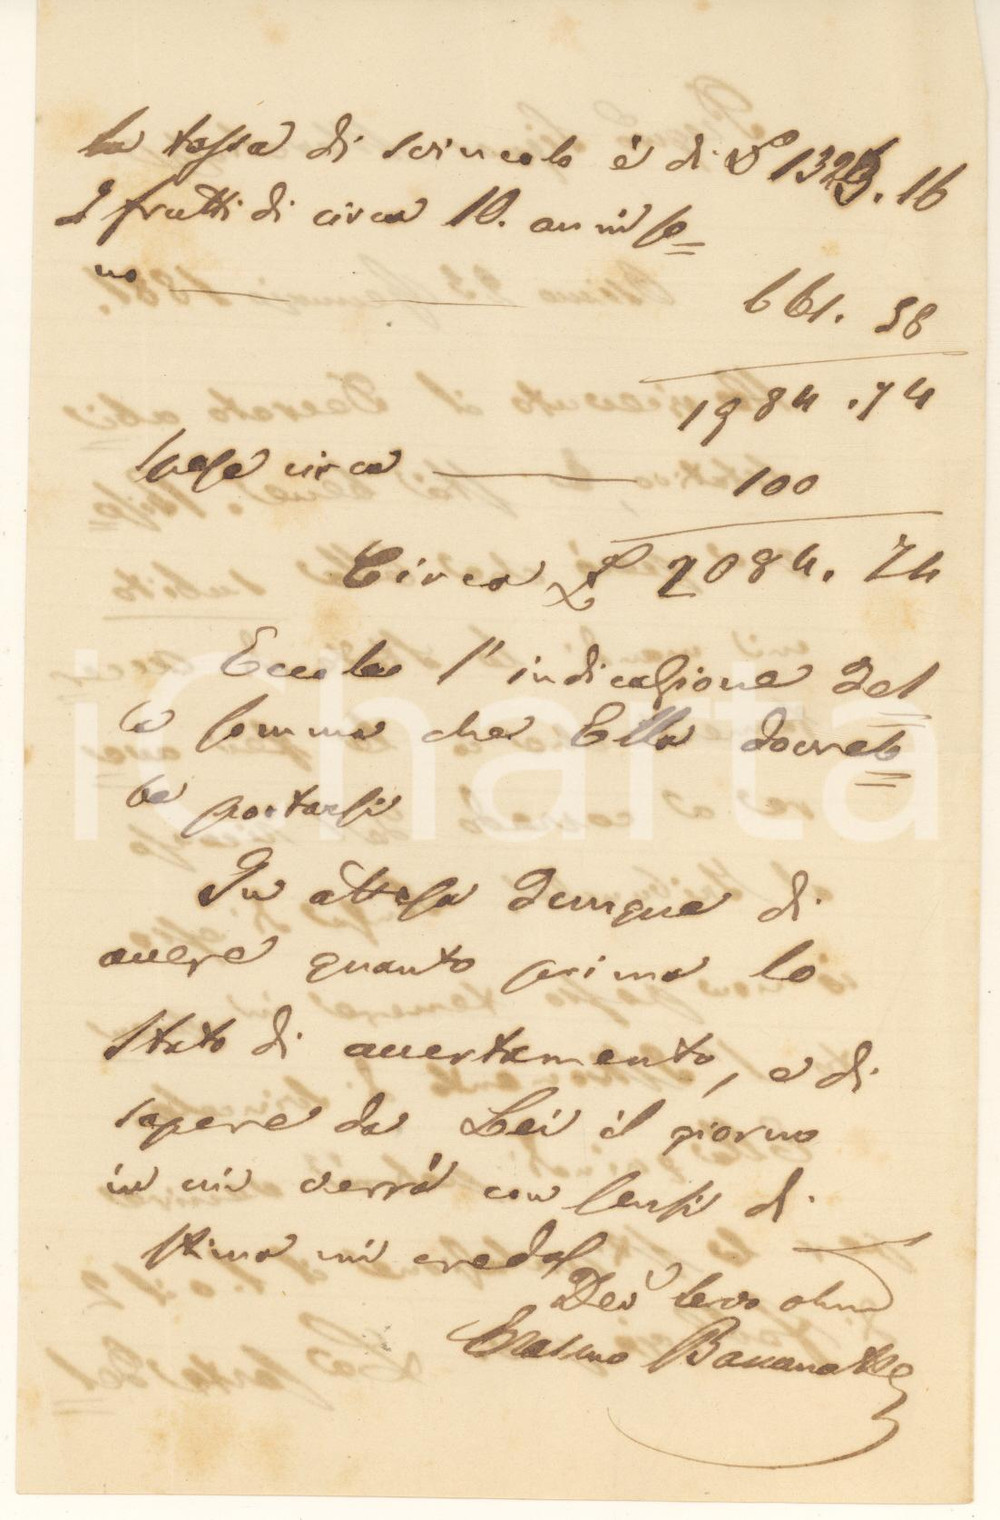 La tassa di svincolo è di £ 1323.16
I frutti di circa 10. anni so=
no 661.58
1984.74
Spese circa 100
Circa £ 2084.74
Eccole l'indicazione del=
la somma che Ella dovreb=
be portarsi
In attesa dunque di
avere quanto prima lo
Stato di accertamento, e di
sapere da Lei il giorno
in cui verrà con sensi di
stima mi creda
Dev servo
Erasmo
iCharta